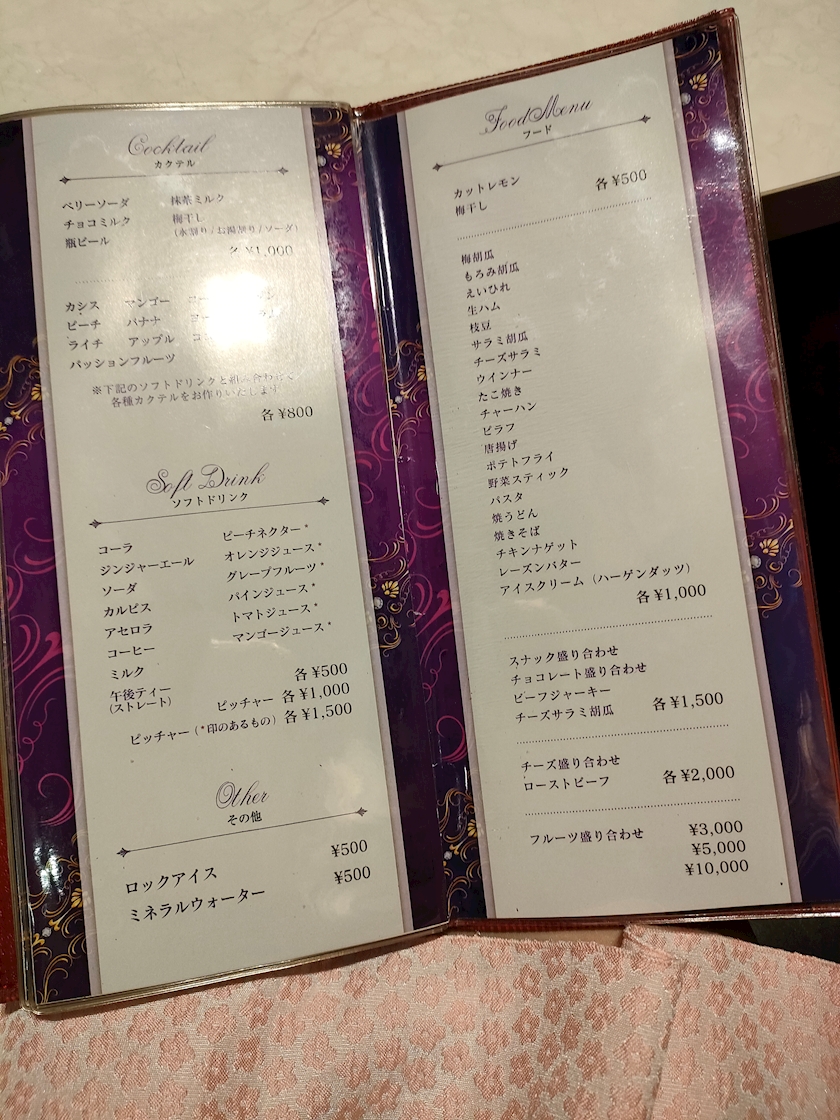 Cocktail
カクテル
ベリーソーダ 抹茶ミルク
チョコミルク 梅干し
瓶ビール (水割り/お湯割り/ソーダ)
各 ¥1,000
カシス マンゴー
ピーチ バナナ
ライチ アップル
パッションフルーツ
※下記のソフトドリンクと組み合わせて
各種カクテルをお作りいたします
各 ¥800
Soft Drink
ソフトドリンク
コーラ ピーチネクター*
ジンジャーエール オレンジジュース*
ソーダ グレープフルーツ*
カルピス パインジュース*
アセロラ トマトジュース*
コーヒー マンゴージュース*
ミルク
各 ¥500
午後ティー
(ストレート)
ピッチャー 各 ¥1,000
ピッチャー (*印のあるもの) 各 ¥1,500
Other
その他
ロックアイス ¥500
ミネラルウォーター ¥500
Food Menu
フード
カットレモン
梅干し
各 ¥500
梅胡瓜
もろみ胡瓜
えいひれ
生ハム
枝豆
サラミ胡瓜
チーズサラミ
ウインナー
たこ焼き
チャーハン
ピラフ
唐揚げ
ポテトフライ
野菜スティック
パスタ
焼うどん
焼きそば
チキンナゲット
レーズンバター
アイスクリーム (ハーゲンダッツ)
各 ¥1,000
スナック盛り合わせ
チョコレート盛り合わせ
ビーフジャーキー
チーズサラミ胡瓜 各 ¥1,500
チーズ盛り合わせ
ローストビーフ 各 ¥2,000
フルーツ盛り合わせ ¥3,000
¥5,000
¥10,000